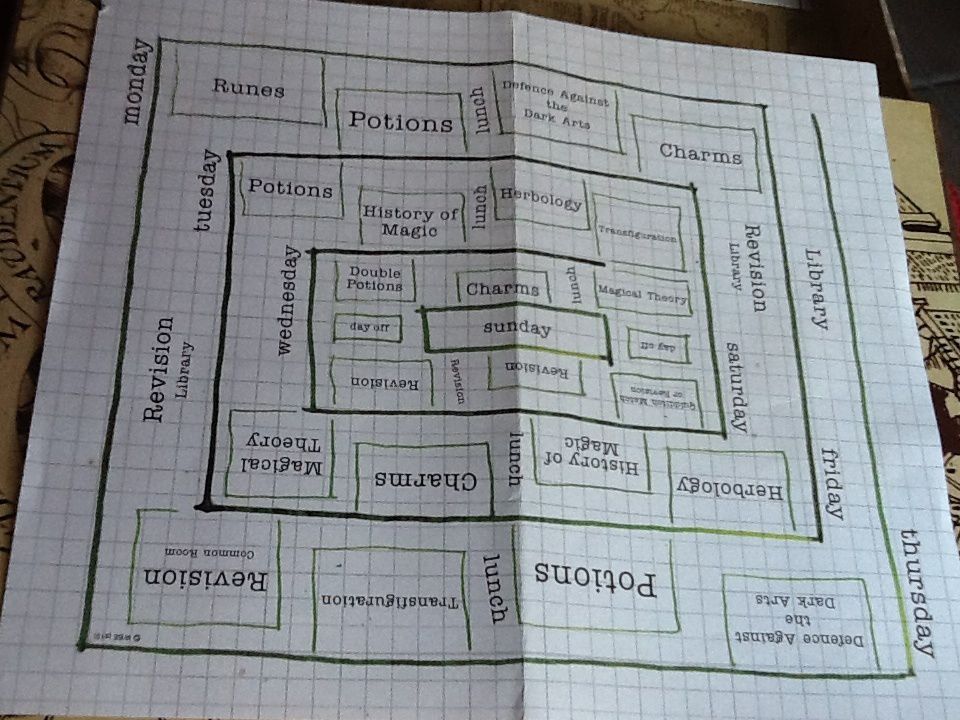 monday
Runes
Potions
lunch
Defence Against
the
Dark Arts
Charms
tuesday
Potions
History of
Magic
lunch
Herbology
Transfiguration
Revision
Library
wednesday
Double
Potions
Charms
lunch
Magical Theory
day off
sunday
day off
Revision
Revision
Revision
Quidditch Match
or Revision
saturday
Library
friday
Herbology
History of
Magic
lunch
Charms
Magical
Theory
Revision
Library
thursday
Defence Against
the
Dark Arts
Potions
lunch
Transfiguration
Revision
Common Room
ACCIDENTIUM